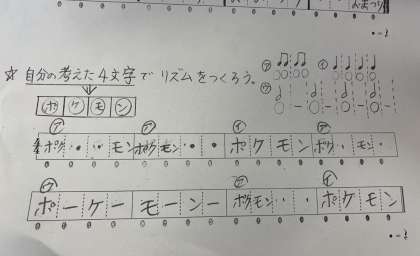 ☆ 自分の考えた4文字で リズムをつくろう。
ポ ケ モ ン
ア イ
ウ
ア ア イ ア
ポケ ・ ・ モン ポケ モン ・ ・ ポ ケ モ ン ポケ ・ モン ・
ウ ア イ
ポ ー ケ ー モ ー ン ー ポケ モン ・ ・ ポ ケ モ ン